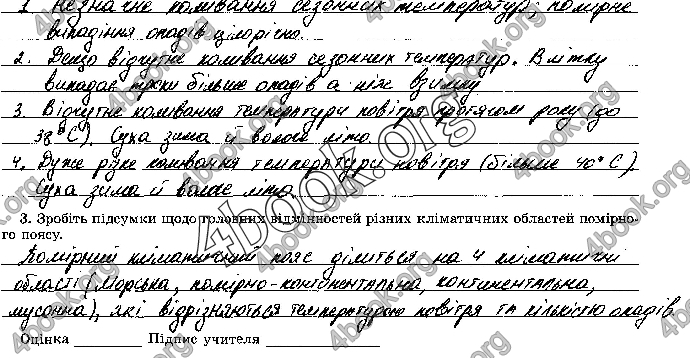 1. Незначне коливання сезонних температур; помірне
випадіння опадів цілорічно.
2. Дещо відчутне коливання сезонних температур. Влітку
випадає трохи більше опадів а ніж взимку
3. Відчутне коливання температури повітря протягом року (до
38°C). Суха зима й вологе літо.
4. Дуже різке коливання температури повітря (більше 40°C).
Суха зима й вологе літо.
3. Зробіть підсумки щодо головних відмінностей різних кліматичних областей помірно-
го поясу.
Помірний кліматичний пояс ділиться на 4 кліматичні
області (морська, помірно-континентальна, континентальна,
мусонна), які відрізняються температурою повітря та кількістю опадів
Оцінка Підпис учителя
4book.org